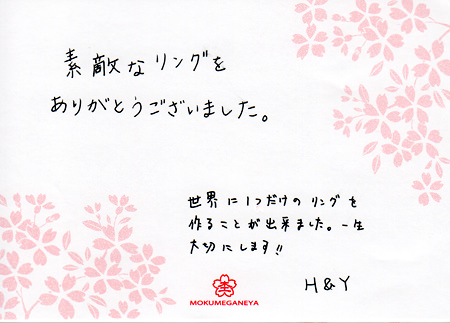 素敵なリングを
ありがとうございました。
世界に1つだけのリングを
作ることが出来ました。一生
大切にします!!
H&Y
MOKUMEGANEYA